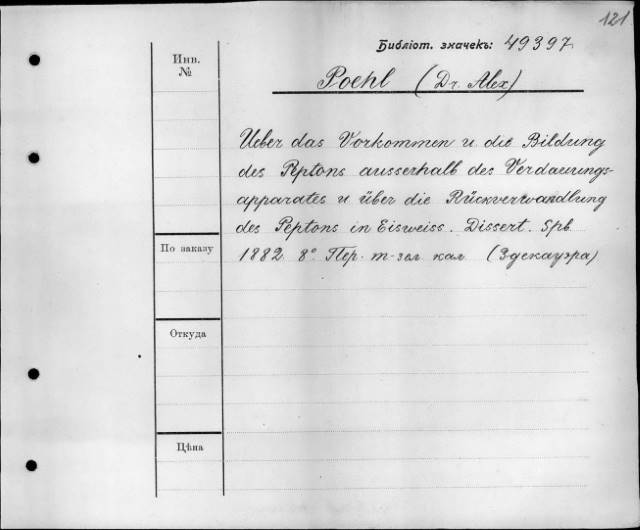 121
Библіот. значекъ: 49397
Инв.
№
Poehl (Dr. Alex)
Ueber das Vorkommen u. die Bildung
des Peptons ausserhalb des Verdauungs-
apparates u über die Rückverwandlung
des Peptons in Eisweiss. Dissert. Spb.
По заказу
1882. 8° Пер. т-зел. кал (Здекауэра)
Откуда
Цѣна